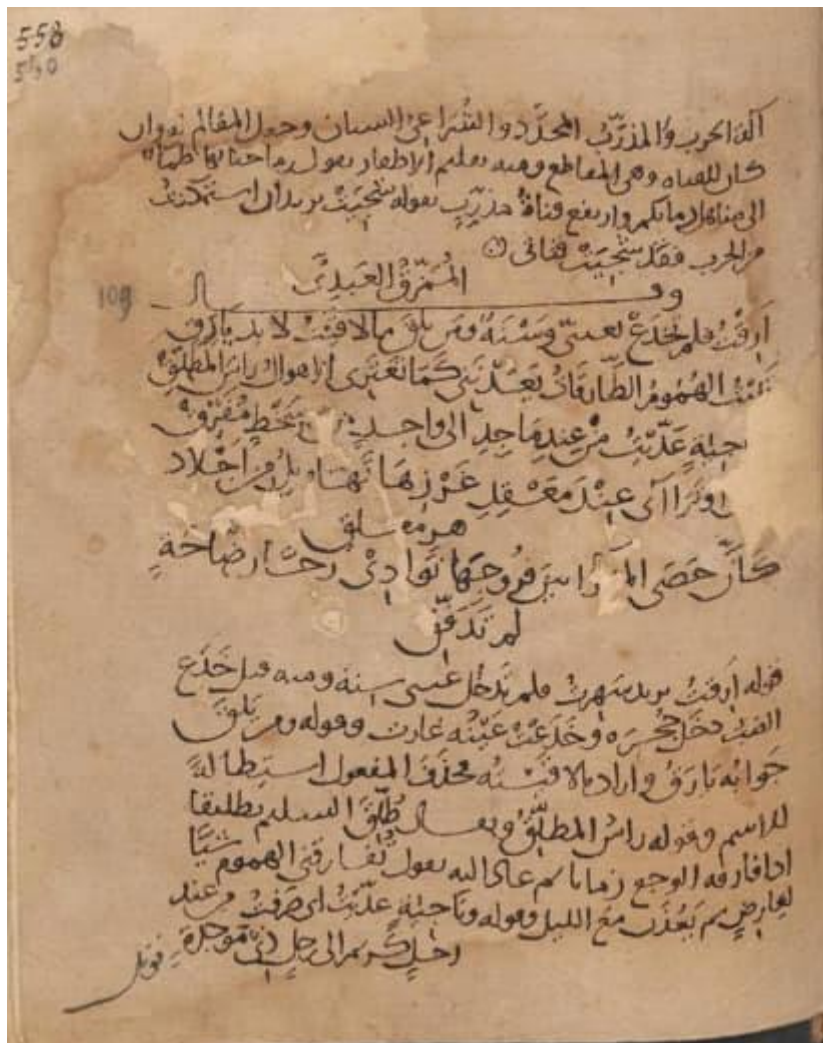 558
550
آلة الحرب والمذرّب المحدّد والقنا عن السنان وجعل المقالم نواب
كان للقناه وهى المقاطع ومنه تقليم الاظفار يقول
الى مناهل دمائكم وارتفع قناةُ مذرّبٍ بقوله شجيت يريد ان استمكنت
من الحرب فقد شجيت قناتى
109 وقـــال المُمَزّقُ العَبدِىّ
أَرِقْتُ فلم تخدَع بعينىّ وَسْنَةٌ ومَن يلقَ ما لاقيتُ لا بد يأرَق
تبيتُ الهُمُومُ الطّارقاتُ يَعُدْنَنِى كَمَا تَعتَرِى الاهوالُ راسَ المطلَّقِ
وناجيَةٍ عَدَّيتُ مِن عِندِ مَاجِدٍ الى واحِدٍ من غير سخطٍ مُفَرِّقِ
تراآى عِنْدَ مَعْقِدِ غَرْزِهَا تهاويلُ من اجْلاد
هر معلق
كأنّ حَصَى المعزاء بين فروجها نَوَادِى رَحًا رضّاخةٍ
لم تَدَقَّقِ
قوله ارقتُ يريد سَهِرتُ فلم تدخل عينى سنة ومنه قيل خَدَع
الضبّ دخل جُحرَه وخَدَعَتْ عَيْنُه غارت وقوله ومن يَلقَ
جَوابُه يَأرَقُ واراد ما لاقيتُه فحذف المفعول استطالةً
للاسم وقوله راسُ المطلَّقُ ويقال طُلّقَ السليم تطليقا
اذا فارقه الوجع زمانا ثم عاد اليه يقول تُفارقنى الهموم شيًا
لعارضٍ ثم يَعُدْنَ مع الليل وقوله وناجيةٍ عدّيتُ اى صرفتُ من عند
رجلٍ كريم الى رجلٍ